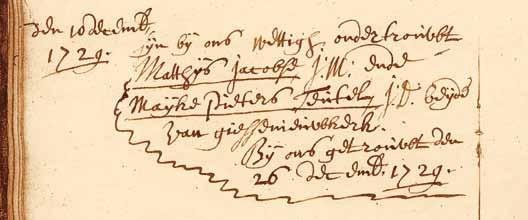 den 10 decemb.
1729.
syn by ons wettigh. ondertrouwt
Matthijs Jacobse J:M: ende
Mayke Pieters J:D. beijde
van giessenieuwkerk.
By ons getrouwt den
26 decemb. 1729.